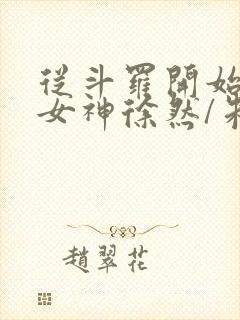 從斗羅開始
女神徐然/朱
趙翠花